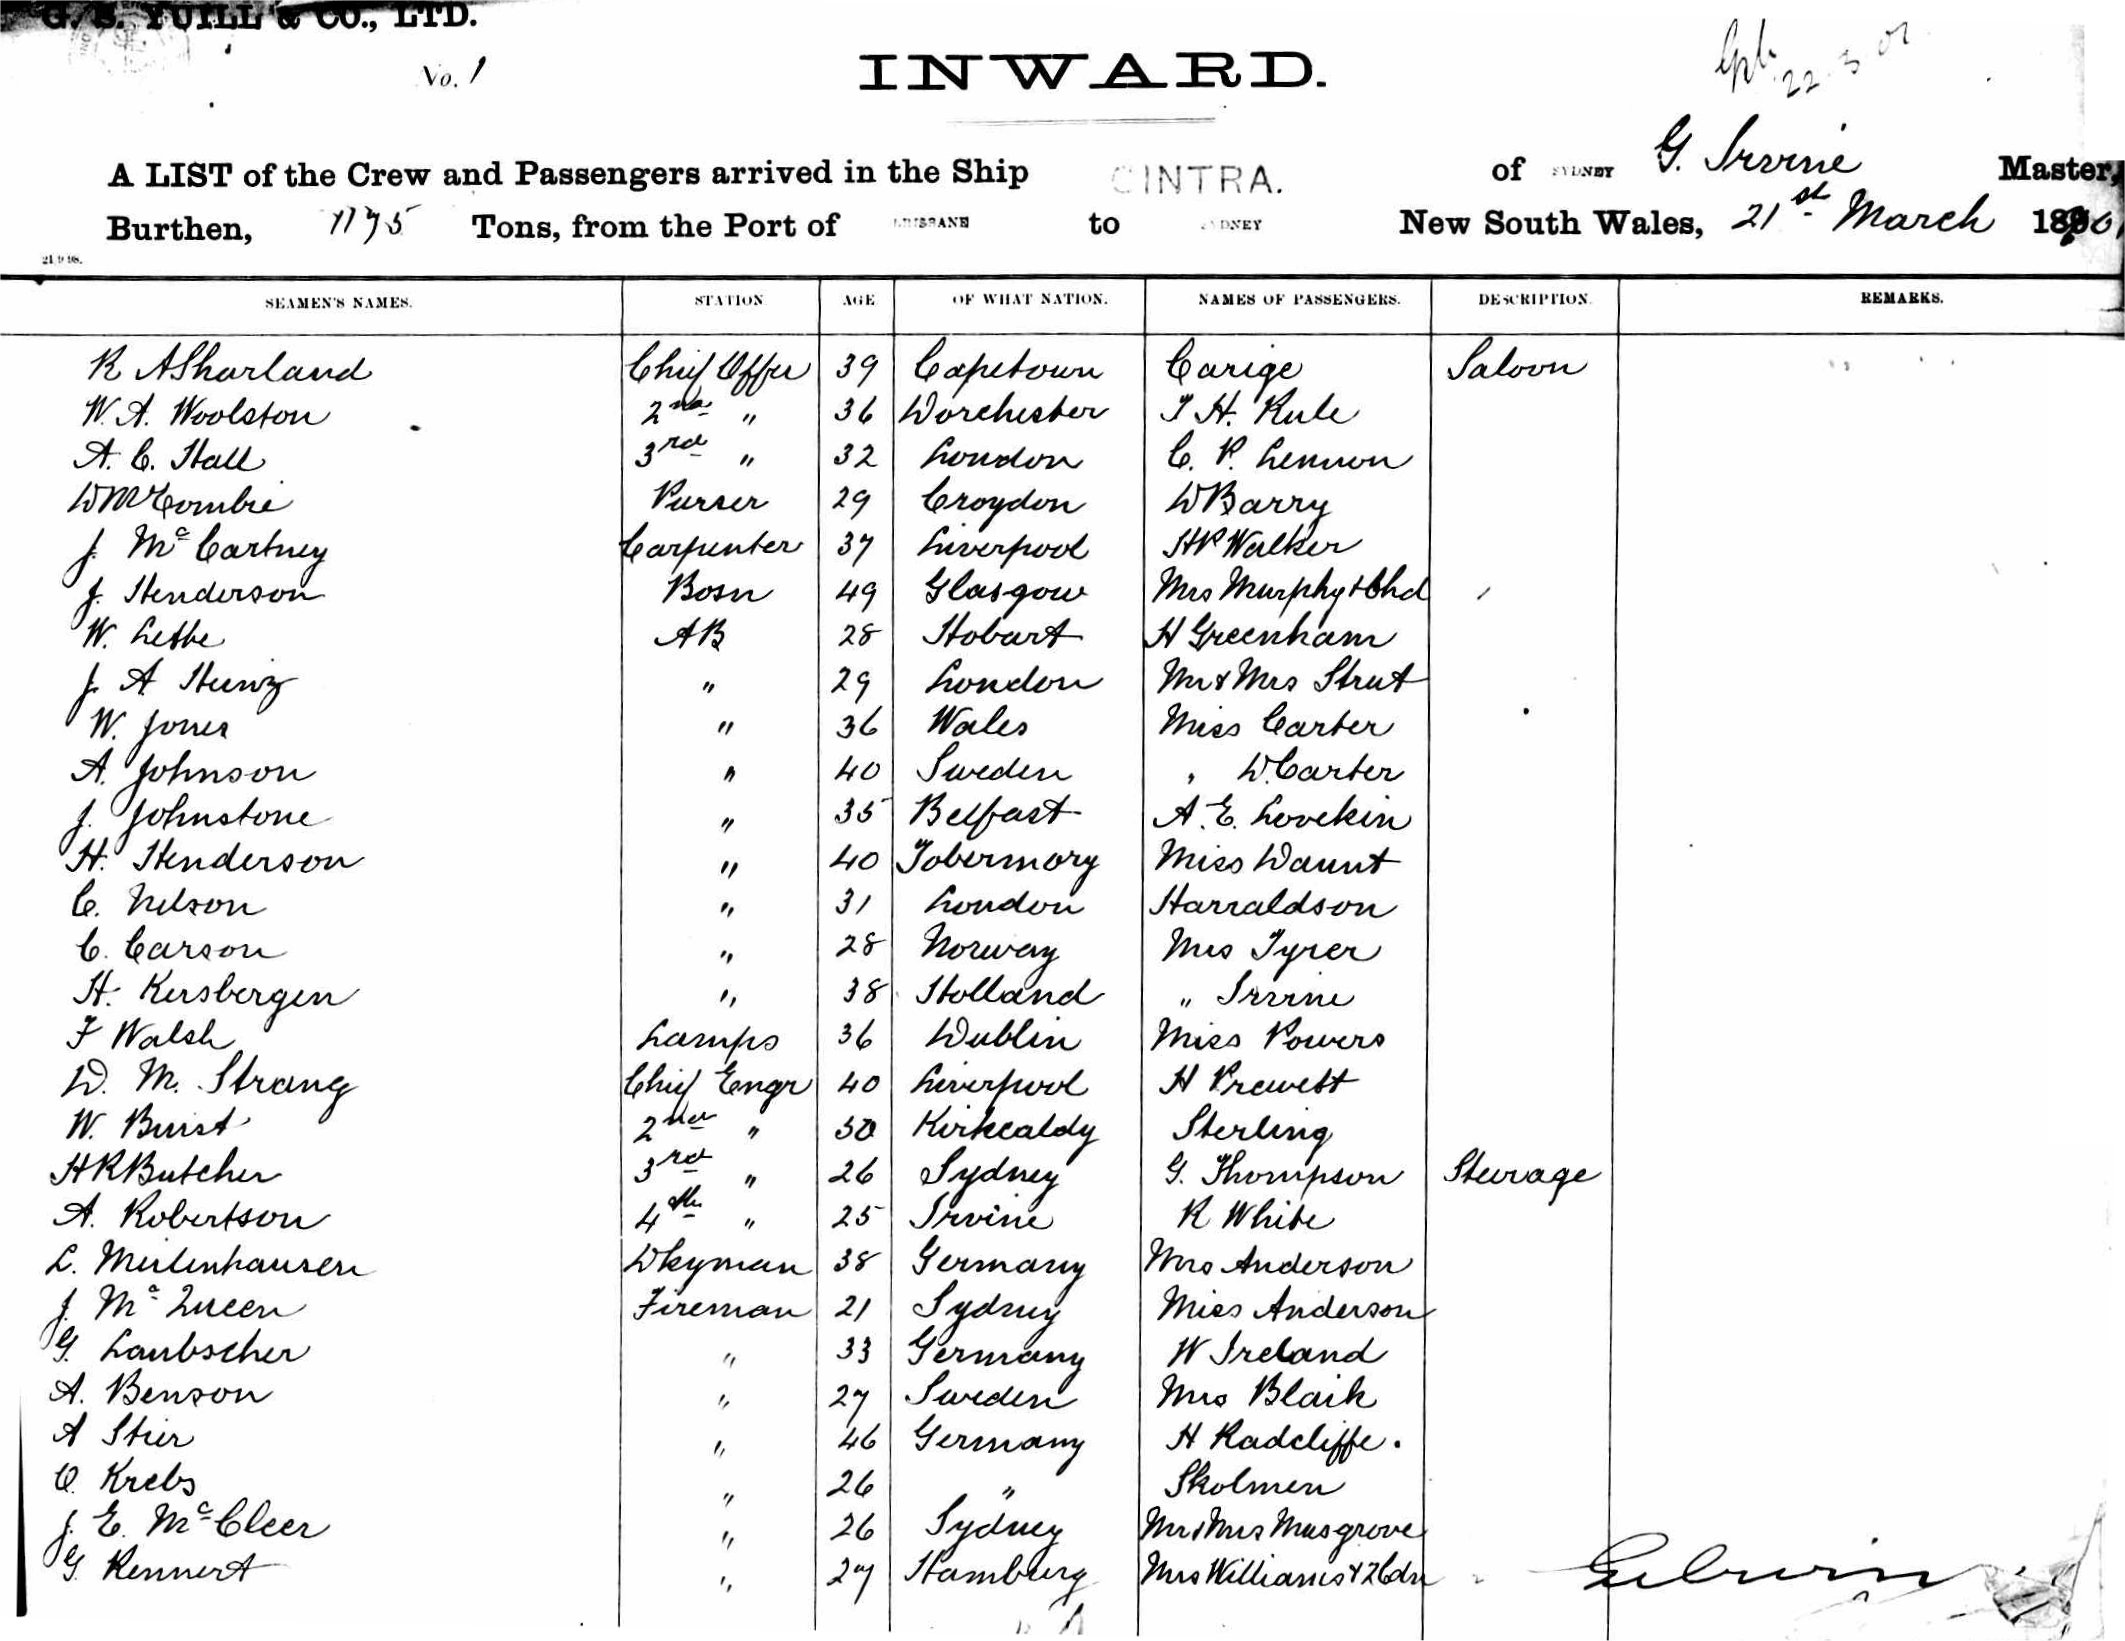 G. S. YUILL & CO., LTD.
No. 1
INWARD.
22.3.01
A LIST of the Crew and Passengers arrived in the Ship CINTRA. of SYDNEY G. Irvine Master,
Burthen, 1175 Tons, from the Port of BRISBANE to SYDNEY New South Wales, 21st March 1901
21 9 98.
SEAMEN'S NAMES. STATION AGE OF WHAT NATION. NAMES OF PASSENGERS. DESCRIPTION. REMARKS.
R A Sharland Chief Offer 39 Capetown Carige Saloon
W. A. Woolston 2nd " 36 Dorchester T H. Rule
A. C. Hall 3rd " 32 London C. P. Lennon
D McCombie Purser 29 Croydon D Barry
J. McCartney Carpenter 37 Liverpool H P Walker
J. Henderson Bosn 49 Glasgow Mrs Murphy & Chd
W. Lette AB 28 Hobart H Greenham
J. A Heinz " 29 London Mr & Mrs Strut
W. Jones " 36 Wales Miss Carter
A. Johnson " 40 Sweden " D. Carter
J. Johnstone " 35 Belfast A. E. Lovekin
H. Henderson " 40 Tobermory Miss Daunt
C. Nelson " 31 London Harraldson
C. Carson " 28 Norway Mrs Tyrer
H. Kersbergen " 38 Holland " Irvine
F Walsh Lamps 36 Dublin Miss Powers
D. M. Strang Chief Engr 40 Liverpool H Prewett
W. Buist 2nd " 50 Kirkcaldy Sterling
H R Butcher 3rd " 26 Sydney G. Thompson Steerage
A. Robertson 4th " 25 Irvine R White
L. Meilenhausen Dkyman 38 Germany Mrs Anderson
J. McQueen Fireman 21 Sydney Miss Anderson
G. Laubscher " 33 Germany W Ireland
A. Benson " 27 Sweden Mrs Blaik
A Stier " 46 Germany H Radcliffe.
O. Krebs " 26 " Skolmen
J. E. McCleer " 26 Sydney Mr & Mrs Musgrove
G. Rennert " 27 Hamburg Mrs Williams & 2 Cdn